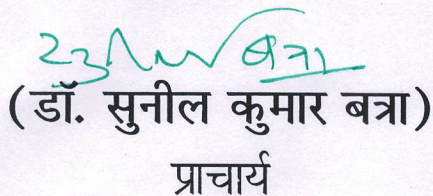 सुनील बत्रा
(डॉ. सुनील कुमार बत्रा)
प्राचार्य